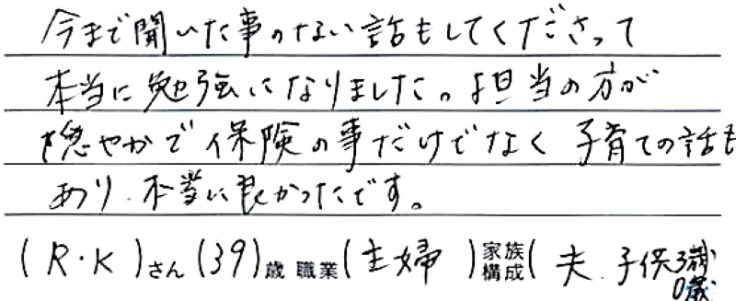 今まで聞いた事のない話もしてくださって
本当に勉強になりました。担当の方が
穏やかで保険の事だけでなく子育ての話も
あり、本当に良かったです。
(R・K)さん(39)歳 職業(主婦)家族構成(夫、子供3歳
0歳